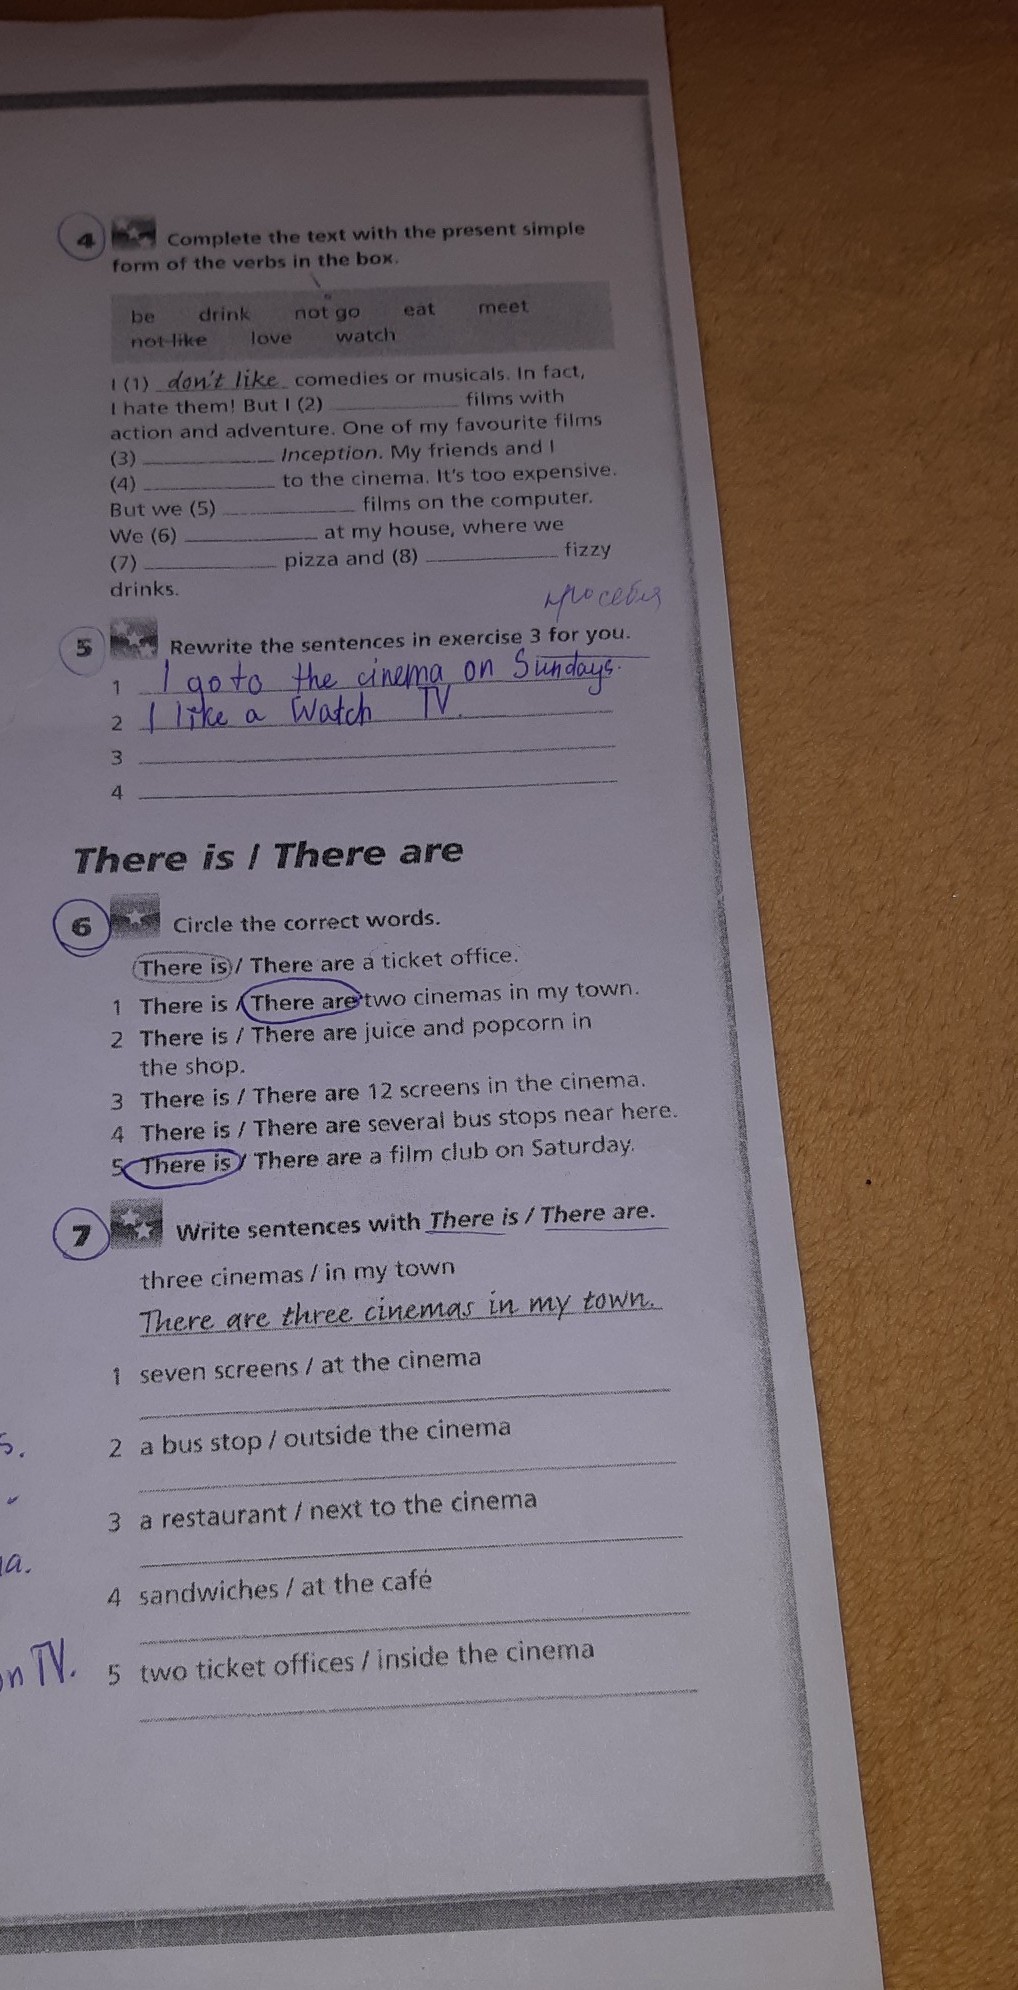 4 Complete the text with the present simple
form of the verbs in the box.
be drink not go eat meet
not like love watch
I (1) don't like comedies or musicals. In fact,
I hate them! But I (2) ____________ films with
action and adventure. One of my favourite films
(3) ____________ Inception. My friends and I
(4) ____________ to the cinema. It's too expensive.
But we (5) ____________ films on the computer.
We (6) ____________ at my house, where we
(7) ____________ pizza and (8) ____________ fizzy
drinks.
про себя
5 Rewrite the sentences in exercise 3 for you.
1 I go to the cinema on Sundays.
2 I like a Watch TV.
3
4
There is / There are
6 Circle the correct words.
There is / There are a ticket office.
1 There is / There are two cinemas in my town.
2 There is / There are juice and popcorn in
the shop.
3 There is / There are 12 screens in the cinema.
4 There is / There are several bus stops near here.
5 There is / There are a film club on Saturday.
7 Write sentences with There is / There are.
three cinemas / in my town
There are three cinemas in my town.
1 seven screens / at the cinema
s.
2 a bus stop / outside the cinema
3 a restaurant / next to the cinema
a.
4 sandwiches / at the café
on TV.
5 two ticket offices / inside the cinema